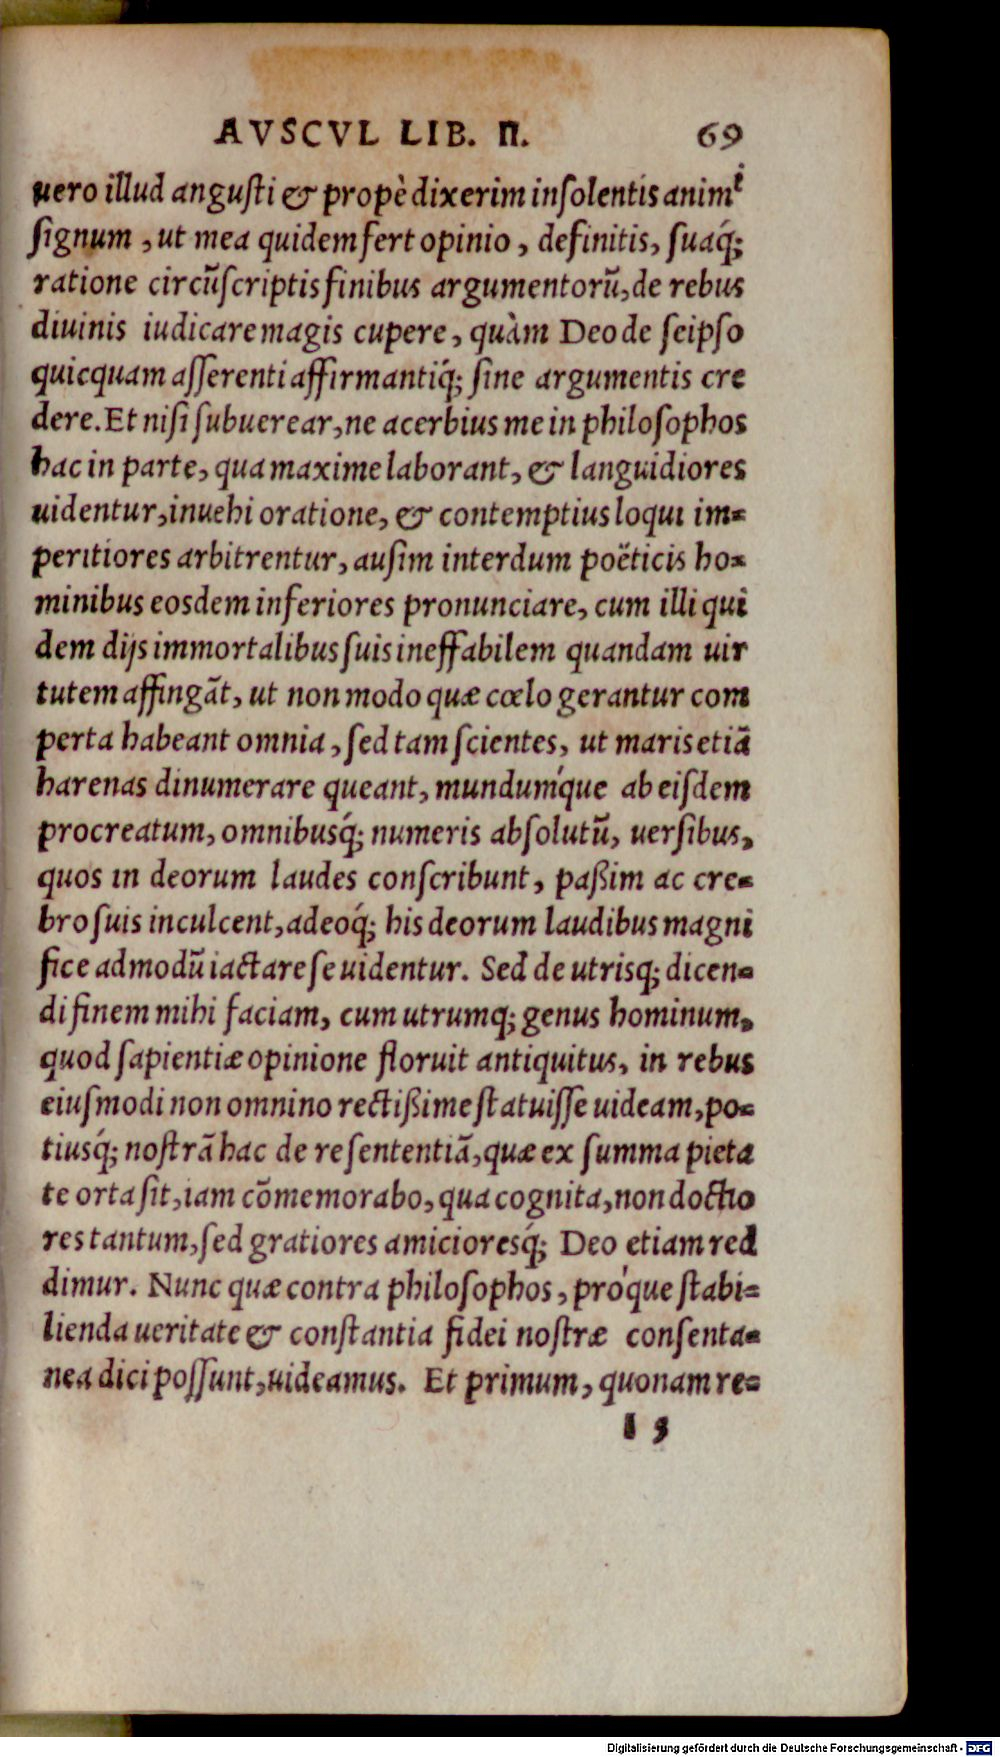 AVSCVL LIB. II. 69
uero illud angusti & propè dixerim insolentis animi
signum, ut mea quidem fert opinio, definitis, suaq́;
ratione circũscriptis finibus argumentorũ, de rebus
diuinis iudicare magis cupere, quàm Deo de seipso
quicquam asserenti affirmantiq́; sine argumentis cre
dere. Et nisi subuerear, ne acerbius me in philosophos
hac in parte, qua maxime laborant, & languidiores
uidentur, inuehi oratione, & contemptius loqui im=
peritiores arbitrentur, ausim interdum poëticis ho=
minibus eosdem inferiores pronunciare, cum illi qui
dem dijs immortalibus suis ineffabilem quandam uir
tutem affingãt, ut non modo quæ cœlo gerantur com
perta habeant omnia, sed tam scientes, ut maris etiã
harenas dinumerare queant, mundumq́ue ab eisdem
procreatum, omnibusq́; numeris absolutũ, uersibus,
quos in deorum laudes conscribunt, paßim ac cre=
bro suis inculcent, adeoq́; his deorum laudibus magni
fice admodũ iactare se uidentur. Sed de utrisq; dicen=
di finem mihi faciam, cum utrumq; genus hominum,
quod sapientiæ opinione floruit antiquitus, in rebus
eiusmodi non omnino rectißime statuisse uideam, po=
tiusq́; nostrã hac de re sententiã, quæ ex summa pieta
te orta sit, iam cõmemorabo, qua cognita, non doctio
res tantum, sed gratiores amicioresq́; Deo etiam red
dimur. Nunc quæ contra philosophos, proq́ue stabi=
lienda ueritate & constantia fidei nostræ consenta=
nea dici possunt, uideamus. Et primum, quonam re=
I 5
Digitalisierung gefördert durch die Deutsche Forschungsgemeinschaft - DFG